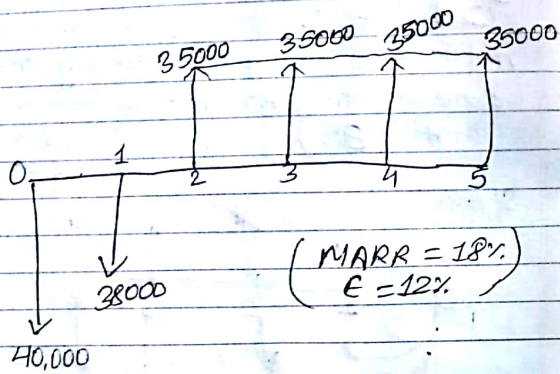 35000 35000 35000 35000
0 1 2 3 4 5
38000
40,000
(MARR = 18%
Є = 12%)